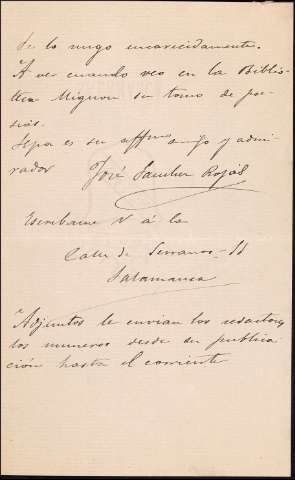 se lo ruego encarecidamente.
A ver cuando veo en la Biblio-
teca Mignon su tomo de poe-
sías.
Sepa es su affmo amigo y admi-
rador José Sánchez Rojas
Escribame V á la
Calle de Serranos-11
Salamanca
Adjuntos le envian los redactores
los numeros desde su publica
ción hasta el corriente